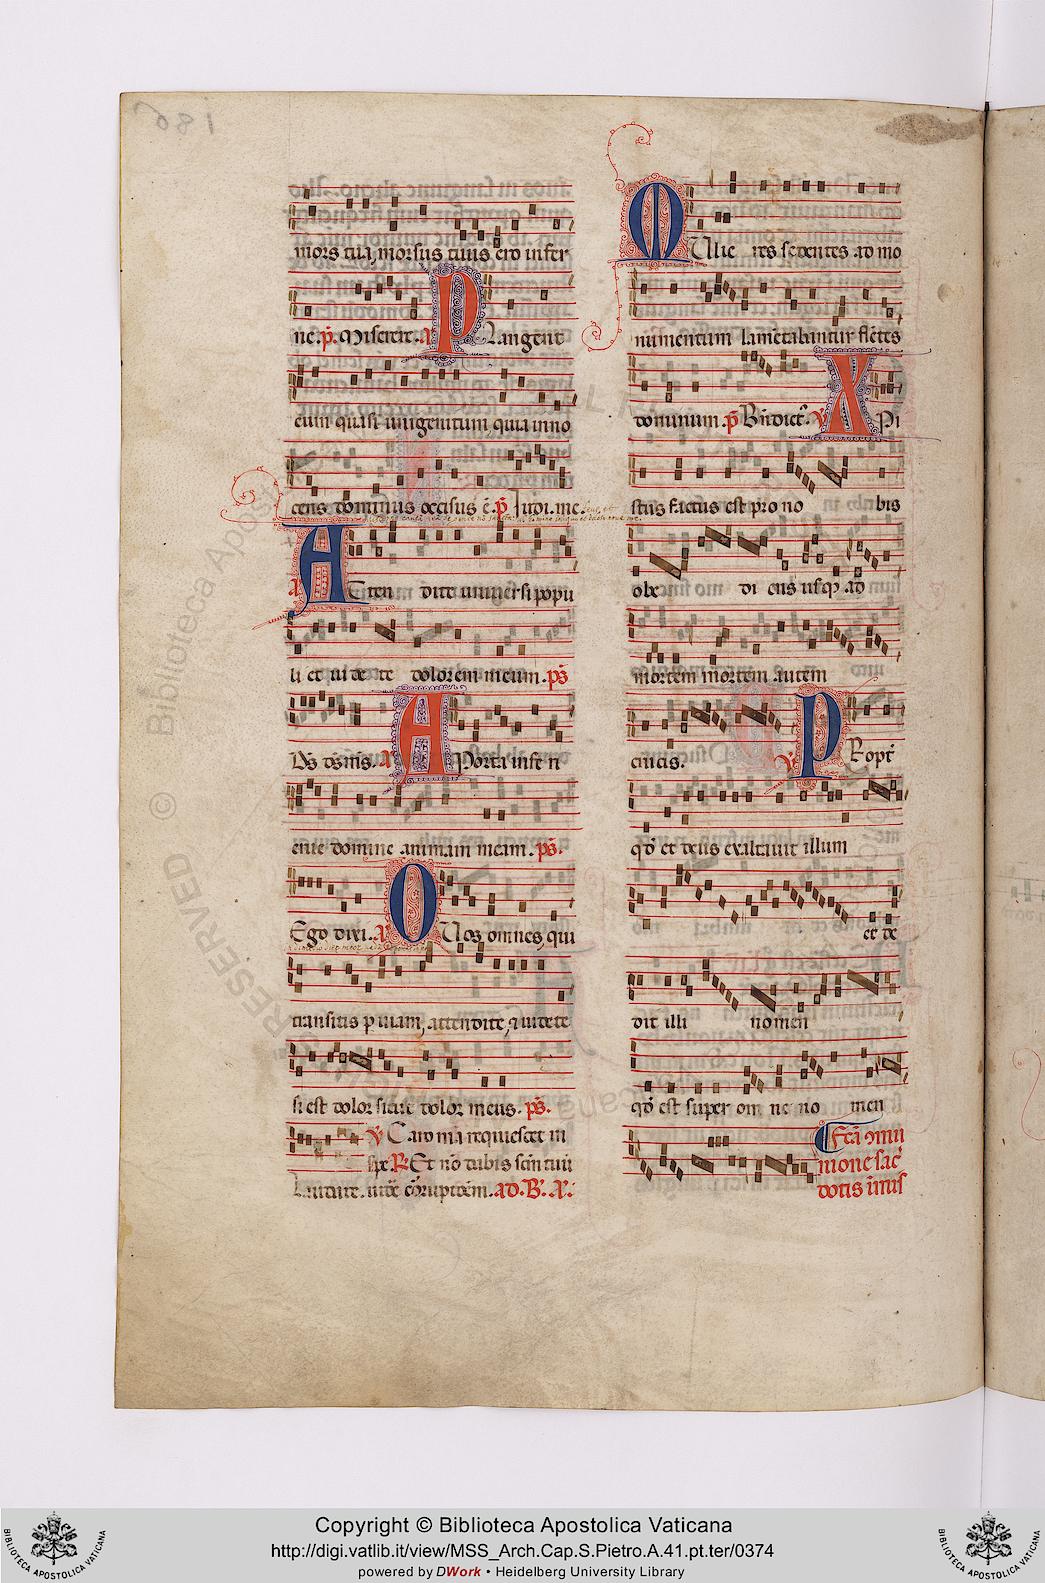 mors tua, morsus tuus ero infer
ne. p̃. Miserere. a Plangent
eum quasi unigenitum, quia inno
cens dominus occisus ẽ. p̃ Iudi. me
a Atten dite universi popu
li et uidete dolorem meum. ps̃
Ds̃ ds̃ ms̃. a A Porta inferi
erue domine animam meam. ps̃.
Ego dixi. a O Uos omnes, qui
transitis p uiam, attendite, ⁊ uidete
si est dolor sicut dolor meus. ps̃.
v̄ Caro mea requiescet in
spe. R̃. Et nõ dabis sc̃m tuũ
ad. B̃. A.
Mulie res sedentes ad mo
numentum lamẽtabantur flẽtes
dominum. p̃ Bñdict̃. v̄ XPi
stus factus est pro no bis
obe di ens usq; ad
mortem mortem autem
crucis. v̄ Propt̃
qđ et deus exaltauit illum
et de
dit illi nomen
qđ est super om ne no men
Fc̃a ꝯmu
nione sac̃
dotis ĩtus
186
© Biblioteca Apostolica Vaticana
RESERVED
Copyright © Biblioteca Apostolica Vaticana
http://digi.vatlib.it/view/MSS_Arch.Cap.S.Pietro.A.41.pt.ter/0374
powered by DWork • Heidelberg University Library
BIBLIOTECA APOSTOLICA VATICANA
BIBLIOTECA APOSTOLICA VATICANA